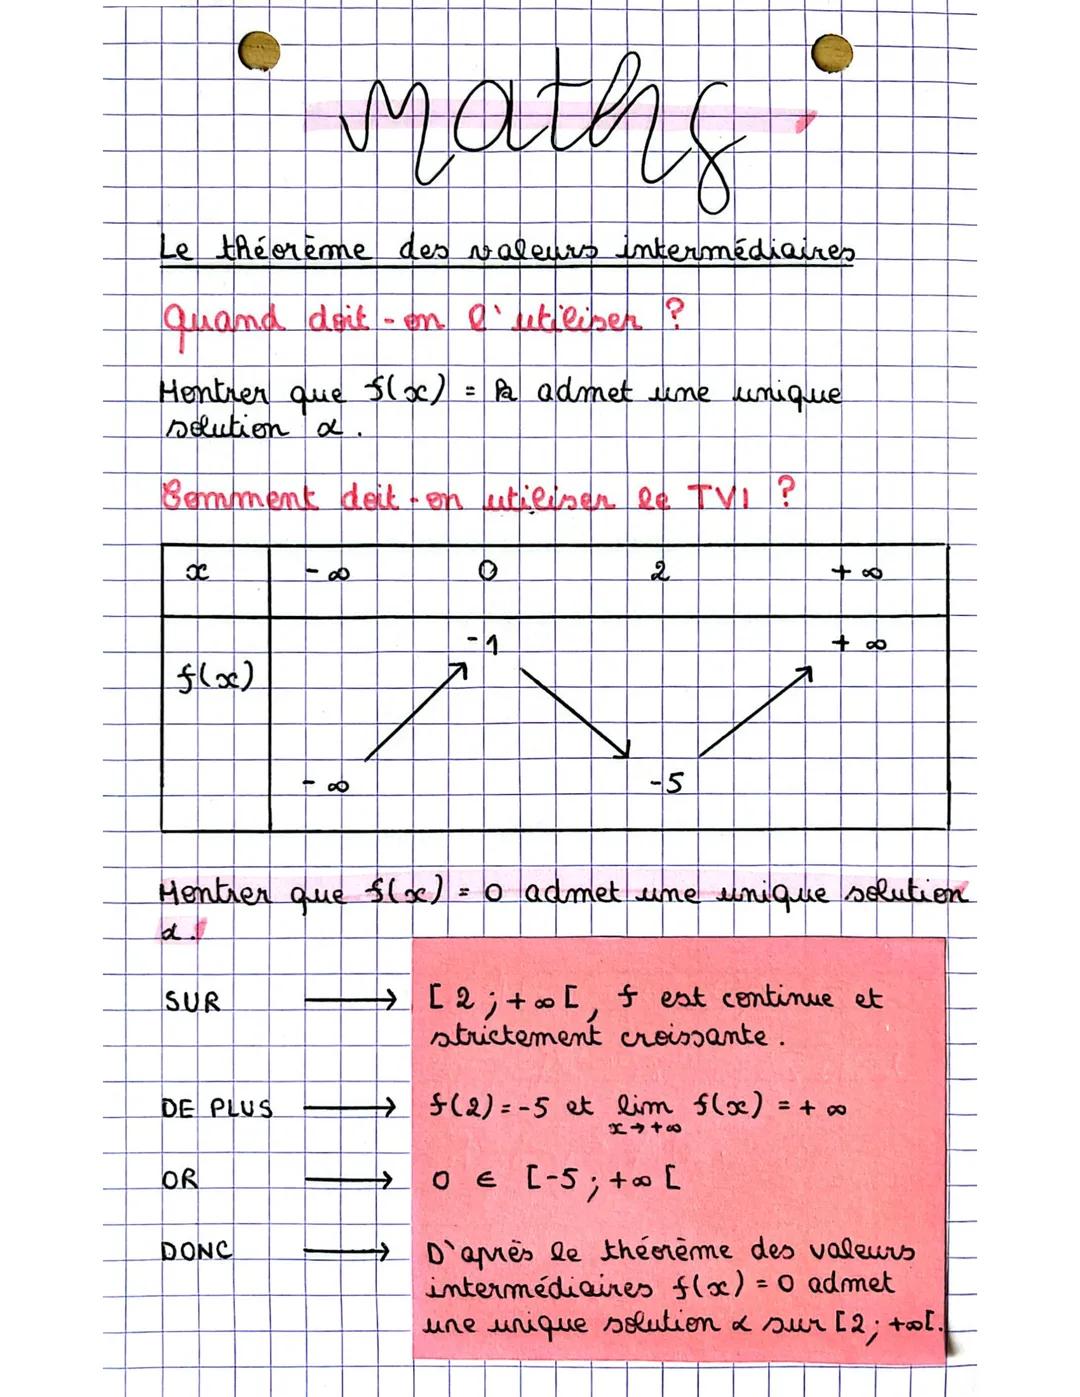 Maths
Le théorème des valeurs intermédiaires
Quand doit-on l'utiliser ?
Montrer que f(x) = k admet une unique
solution α.
Comment doit-on utiliser le TVI ?
x -∞ 0 2 +∞
-1 +∞
f(x)
-∞ -5
Montrer que f(x) = 0 admet une unique solution
α.
SUR → [2 ; +∞[, f est continue et
strictement croissante.
DE PLUS → f(2) = -5 et lim f(x) = +∞
x→+∞
OR → 0 ∈ [-5 ; +∞[
DONC → D'après le théorème des valeurs
intermédiaires f(x) = 0 admet
une unique solution α sur [2 ; +∞[.